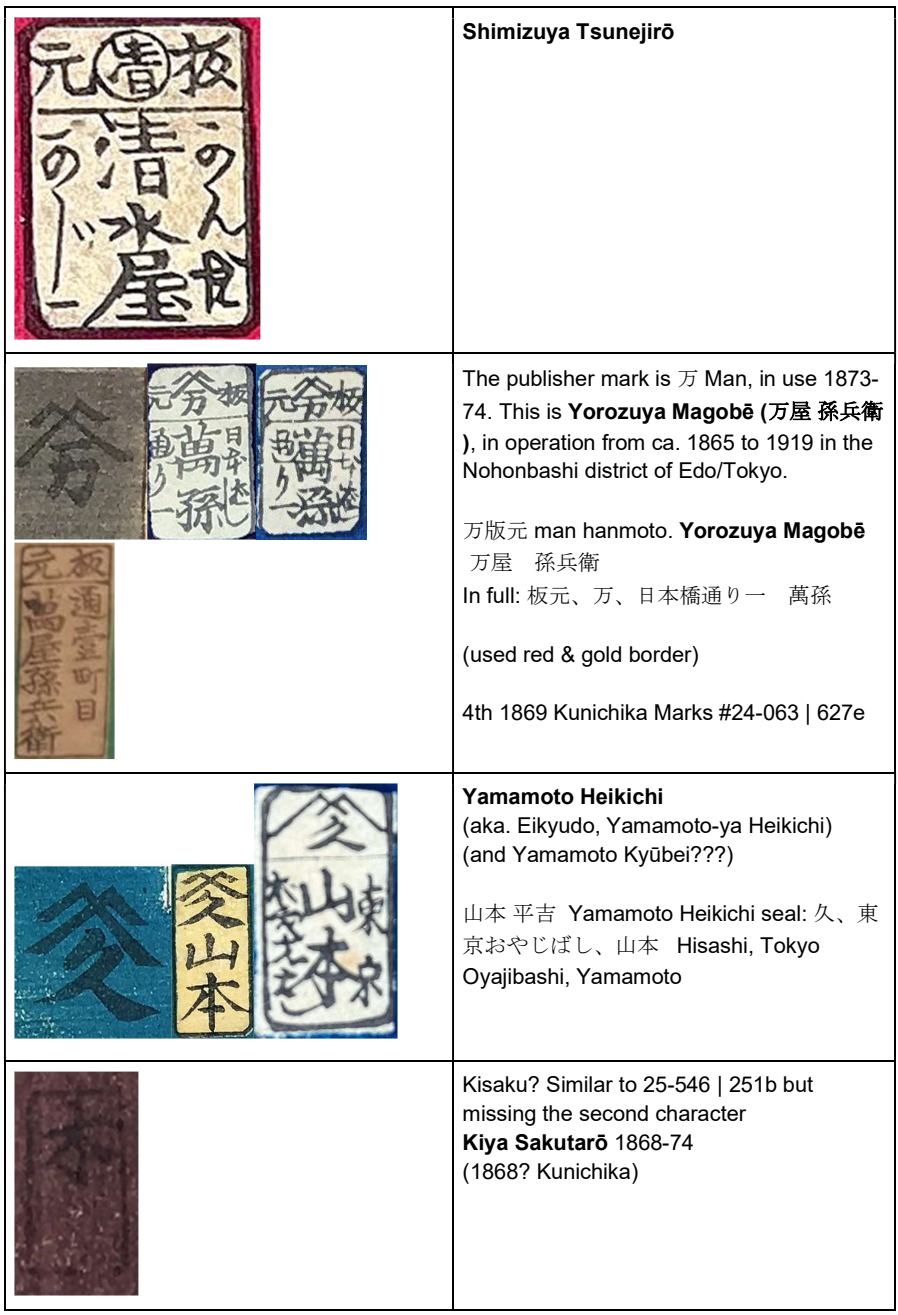 板 清 元
このんだ
清水屋
このじ
Shimizuya Tsunejirō
万
板 万 元
日本はし
萬孫
通り一
板 万 元
萬孫
通り一
板元
通壹町目
萬屋孫兵衛
The publisher mark is 万 Man, in use 1873-
74. This is Yorozuya Magobē (万屋 孫兵衛
), in operation from ca. 1865 to 1919 in the
Nohonbashi district of Edo/Tokyo.
万版元 man hanmoto. Yorozuya Magobē
万屋　孫兵衛
In full: 板元、万、日本橋通り一　萬孫
(used red & gold border)
4th 1869 Kunichika Marks #24-063 | 627e
久
久
山本
久
東京
山本
Yamamoto Heikichi
(aka. Eikyudo, Yamamoto-ya Heikichi)
(and Yamamoto Kyūbei???)
山本 平吉 Yamamoto Heikichi seal: 久、東
京おやじばし、山本　Hisashi, Tokyo
Oyajibashi, Yamamoto
木
Kisaku? Similar to 25-546 | 251b but
missing the second character
Kiya Sakutarō 1868-74
(1868? Kunichika)